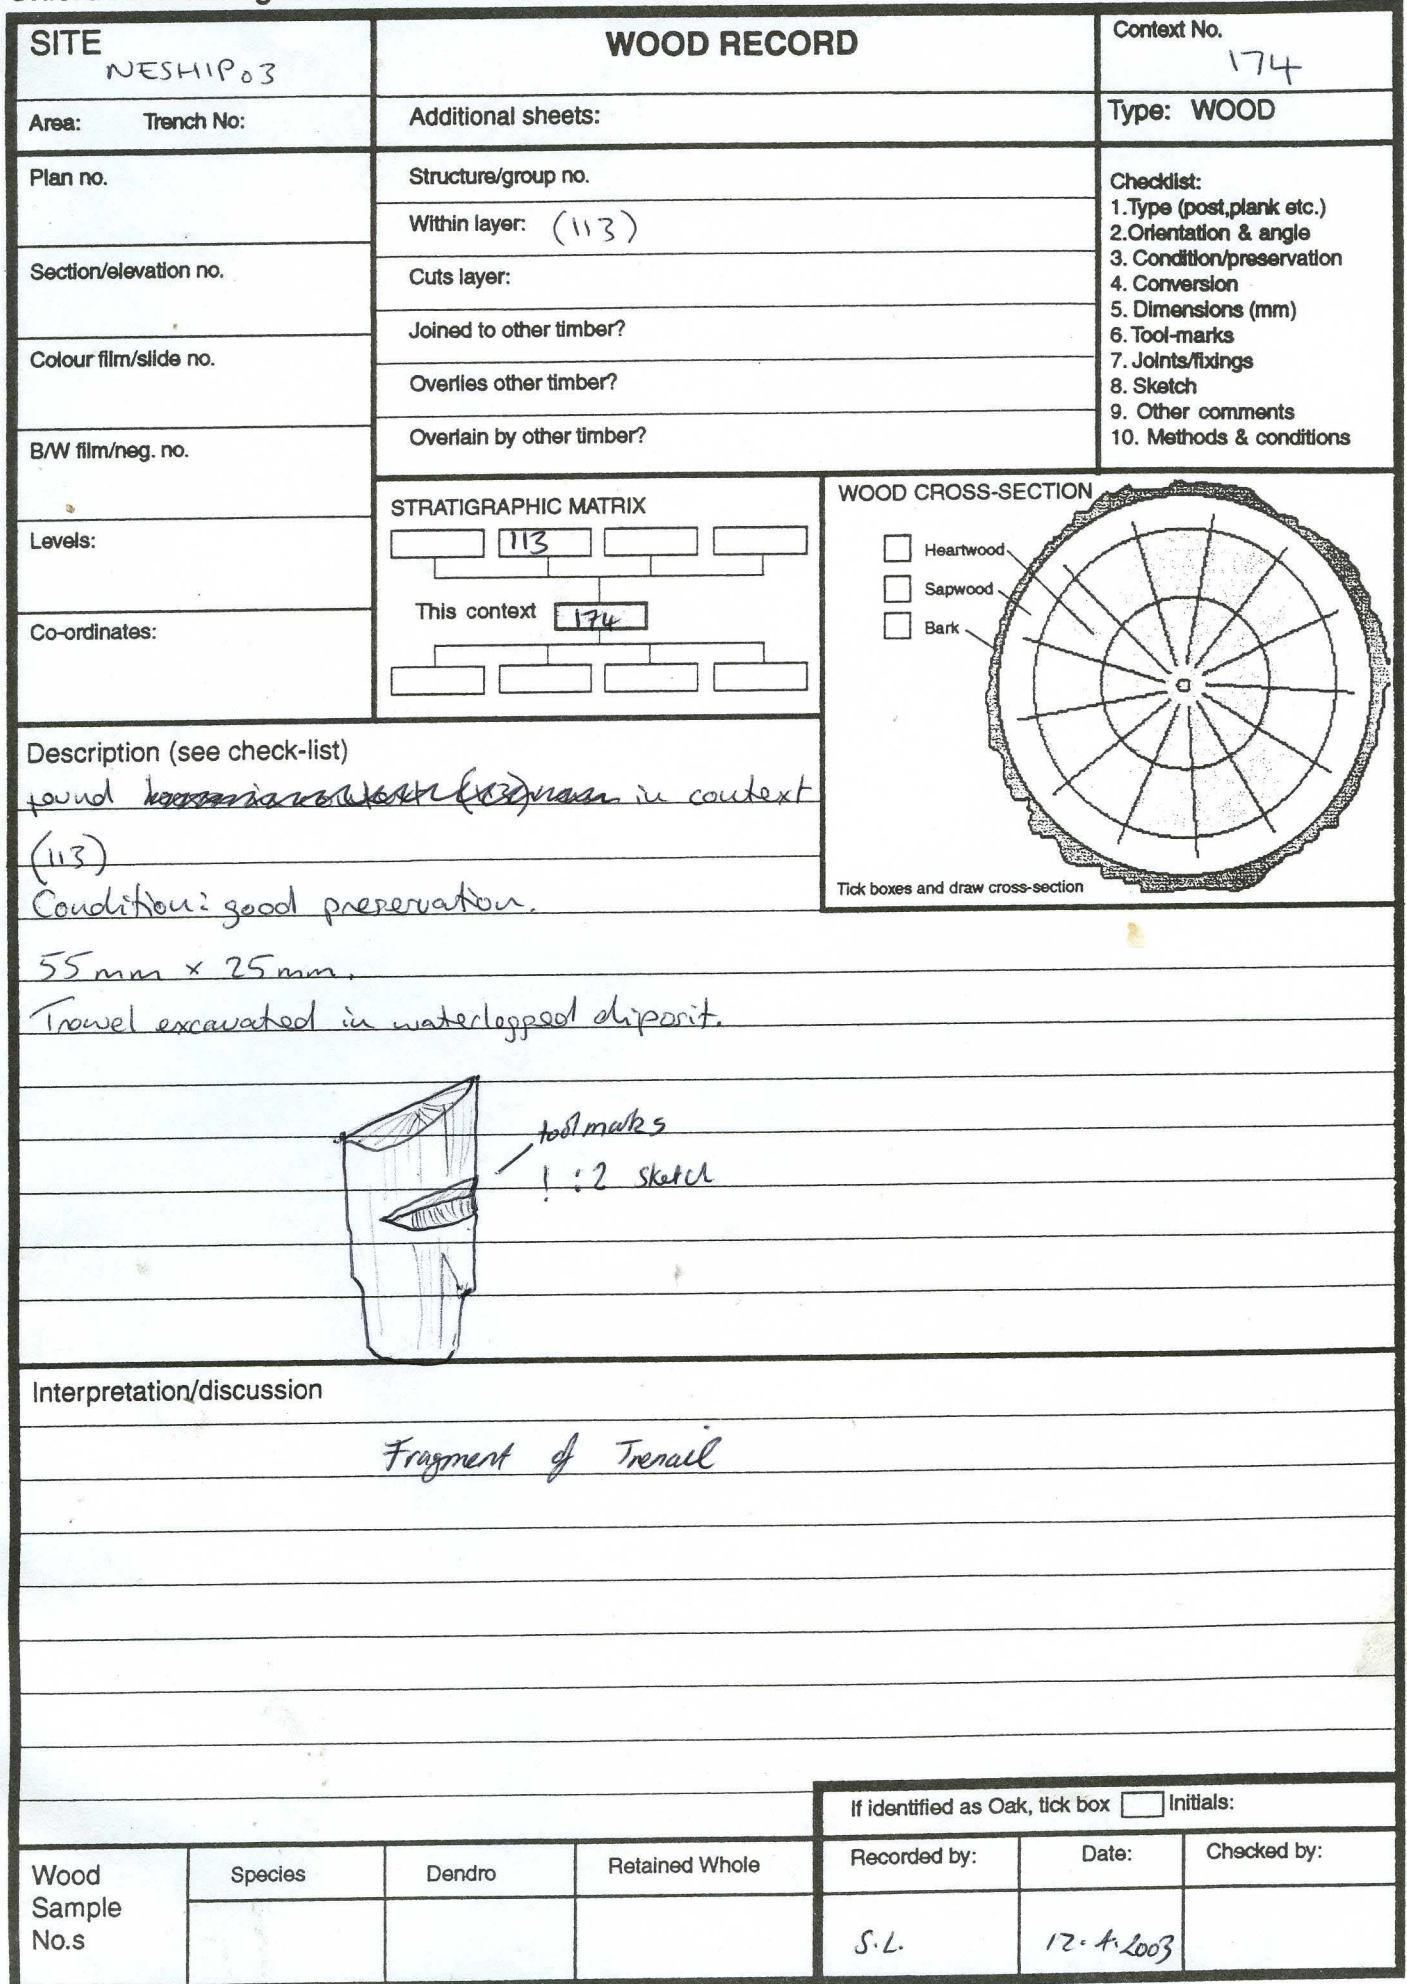 SITE
NESHIP03
WOOD RECORD
Context No.
174
Area: Trench No:
Additional sheets:
Type: WOOD
Plan no.
Structure/group no.
Within layer: (113)
Section/elevation no.
Cuts layer:
Joined to other timber?
Colour film/slide no.
Overlies other timber?
B/W film/neg. no.
Overlain by other timber?
Checklist:
1.Type (post,plank etc.)
2.Orientation & angle
3. Condition/preservation
4. Conversion
5. Dimensions (mm)
6. Tool-marks
7. Joints/fixings
8. Sketch
9. Other comments
10. Methods & conditions
Levels:
Co-ordinates:
STRATIGRAPHIC MATRIX
113
This context 174
WOOD CROSS-SECTION
Heartwood
Sapwood
Bark
Tick boxes and draw cross-section
Description (see check-list)
found in context
(113)
Condition: good preservation.
55mm x 25mm.
Trowel excavated in waterlogged diposit.
toolmarks
1:2 sketch
Interpretation/discussion
Fragment of Trenail
If identified as Oak, tick box Initials:
Wood
Sample
No.s
Species
Dendro
Retained Whole
Recorded by:
Date:
Checked by:
S.L.
12.4.2003